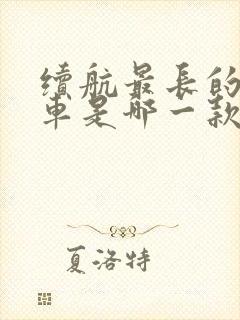 續航最長的
車是哪一款
夏洛特